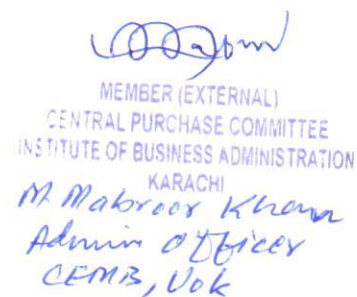 MEMBER (EXTERNAL)
CENTRAL PURCHASE COMMITTEE
INSTITUTE OF BUSINESS ADMINISTRATION
KARACHI
M. Mabroor Khan
Admin Officer
CEMB, UoK